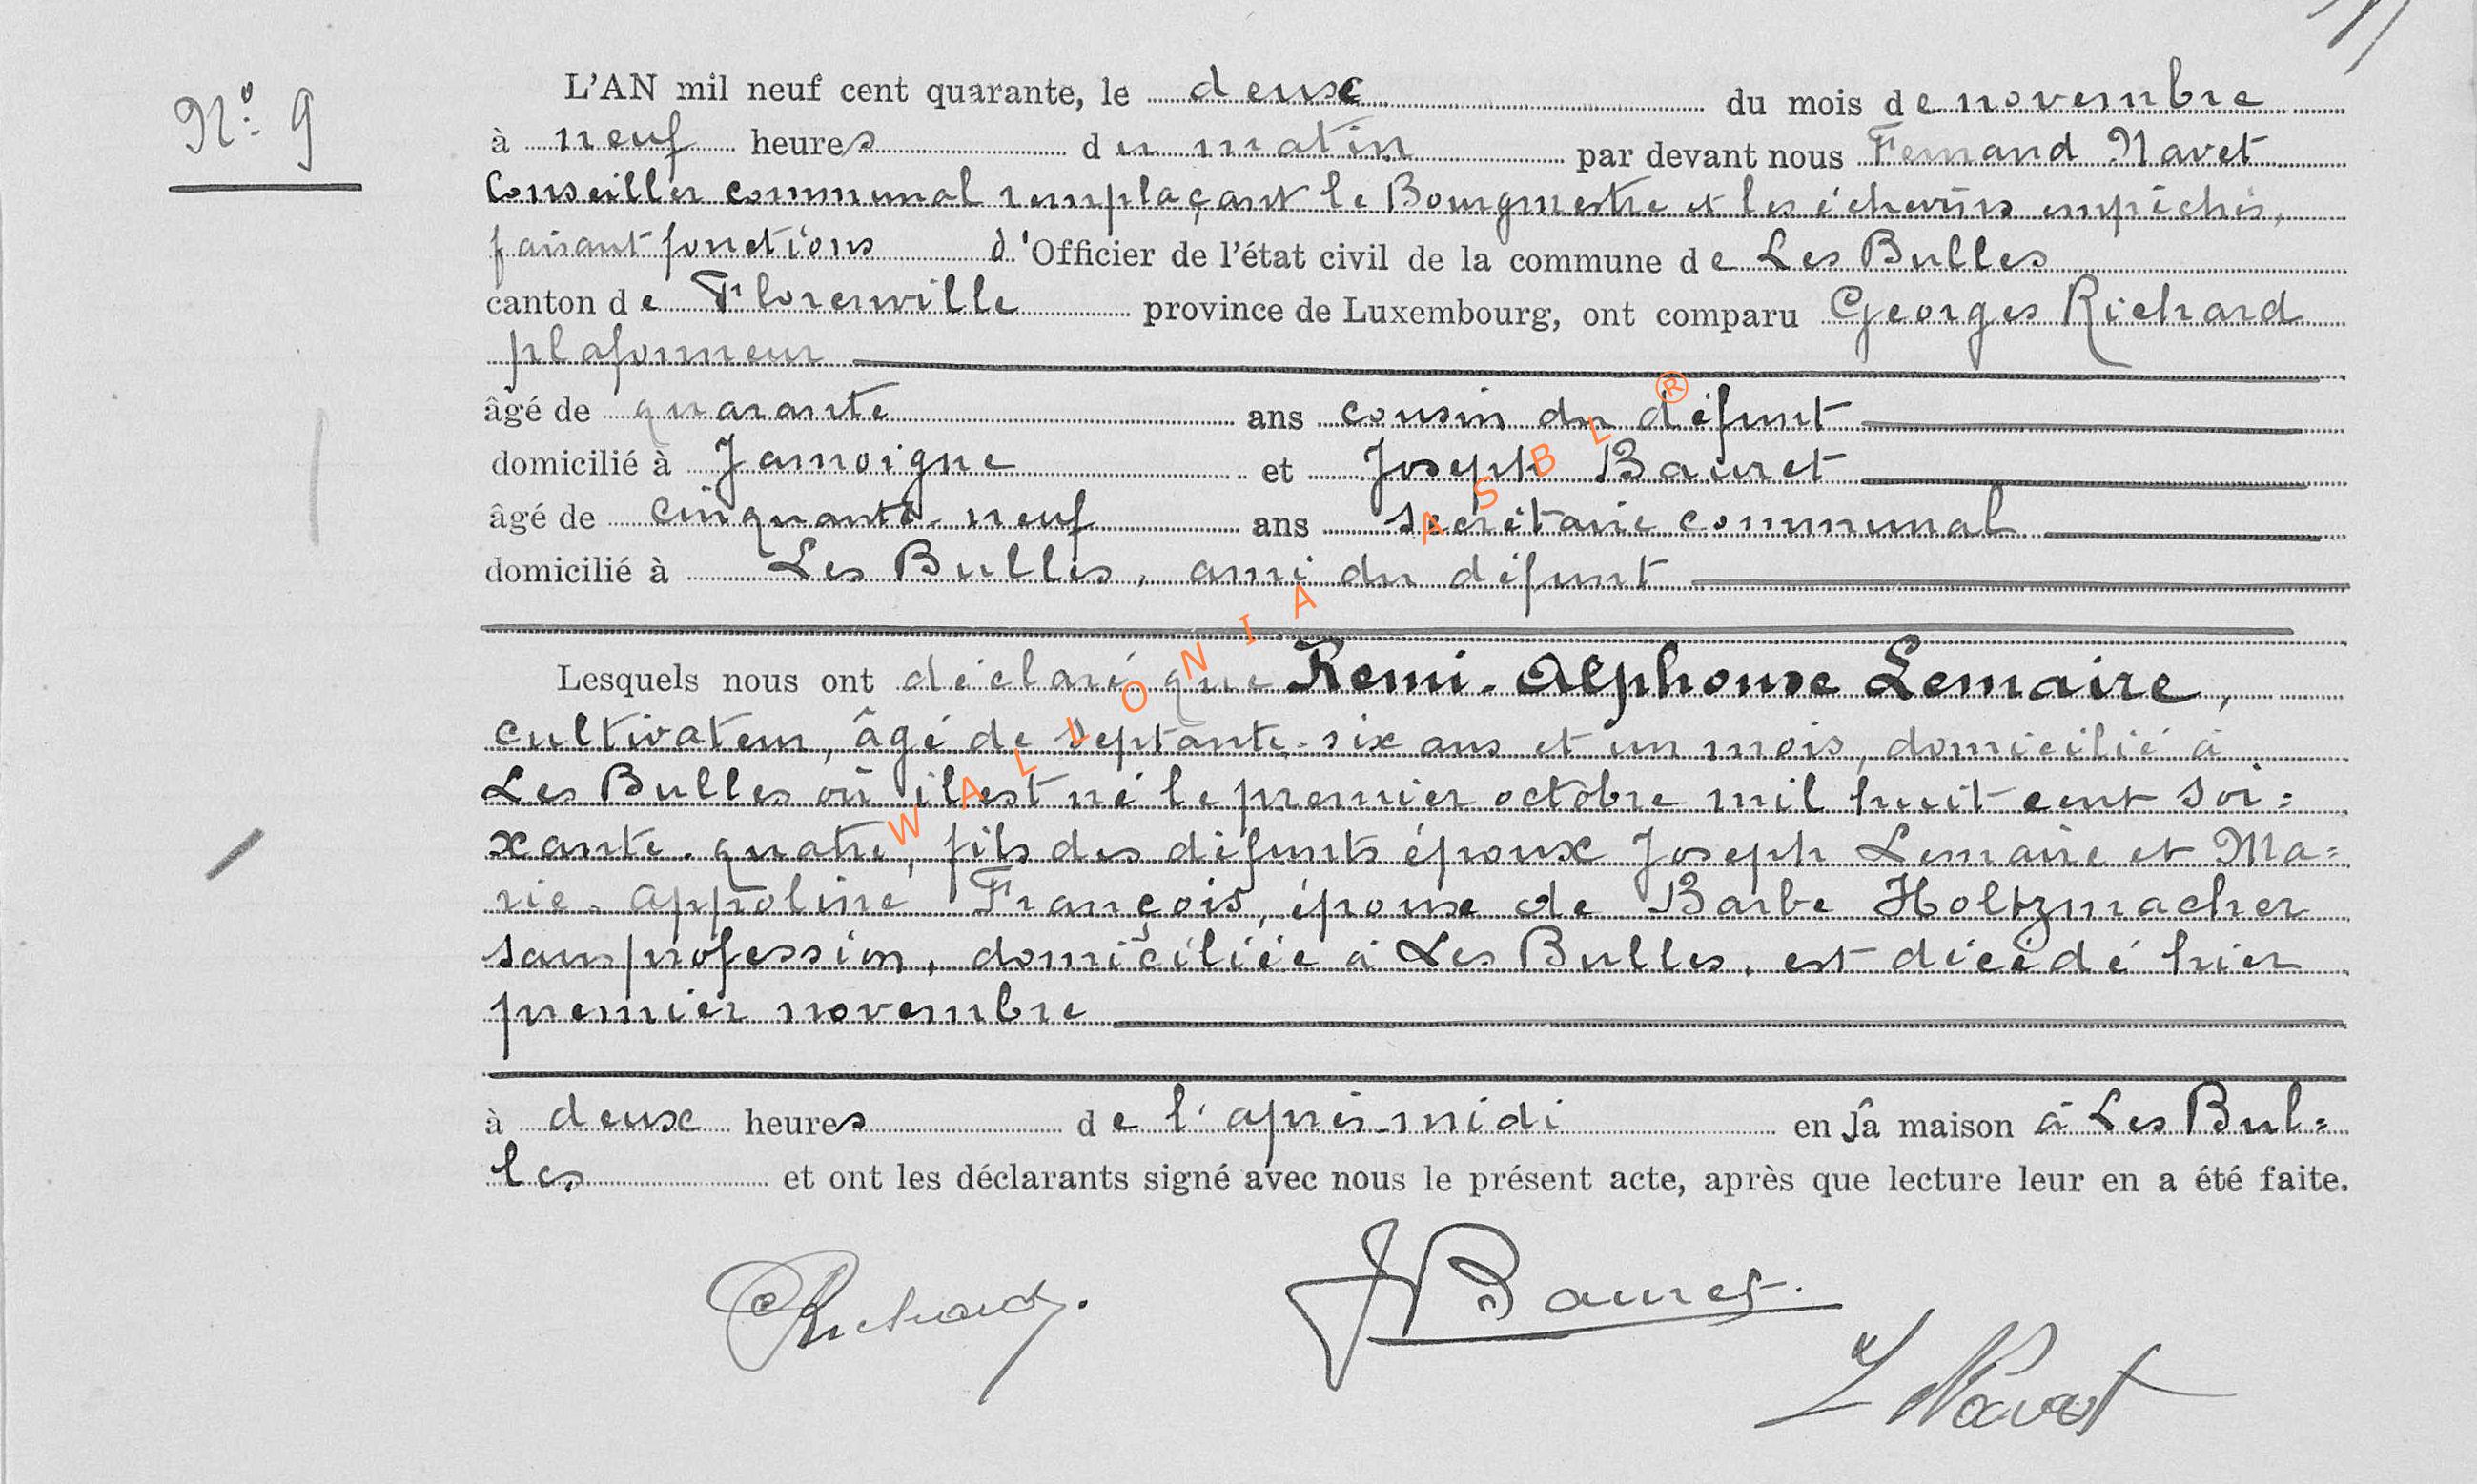 N° 9
L'AN mil neuf cent quarante, le deux du mois de novembre
à neuf heures du matin par devant nous Fernand Navet
Conseiller communal remplaçant le Bourgmestre et les échevins empêchés,
faisant fonctions d'Officier de l'état civil de la commune de Les Bulles
canton de Florenville province de Luxembourg, ont comparu Georges Richard
plafonneur
âgé de quarante ans cousin du défunt
domicilié à Jamoigne et Joseph Bauret
âgé de cinquante-neuf ans secrétaire communal
domicilié à Les Bulles, ami du défunt
Lesquels nous ont déclaré que Remi-Alphonse Lemaire,
cultivateur, âgé de septante-six ans et un mois, domicilié à
Les Bulles où il est né le premier octobre mil huit cent soi=
xante-quatre, fils des défunts époux Joseph Lemaire et Ma=
rie-Appoline François, époux de Barbe Holtzmacher
sans profession, domiciliée à Les Bulles, est décédé hier
premier novembre
à deux heures de l'après-midi en sa maison à Les Bul=
les et ont les déclarants signé avec nous le présent acte, après que lecture leur en a été faite.
GRichard.
J Bauret.
F Navet
WALLONIA ASBL ®